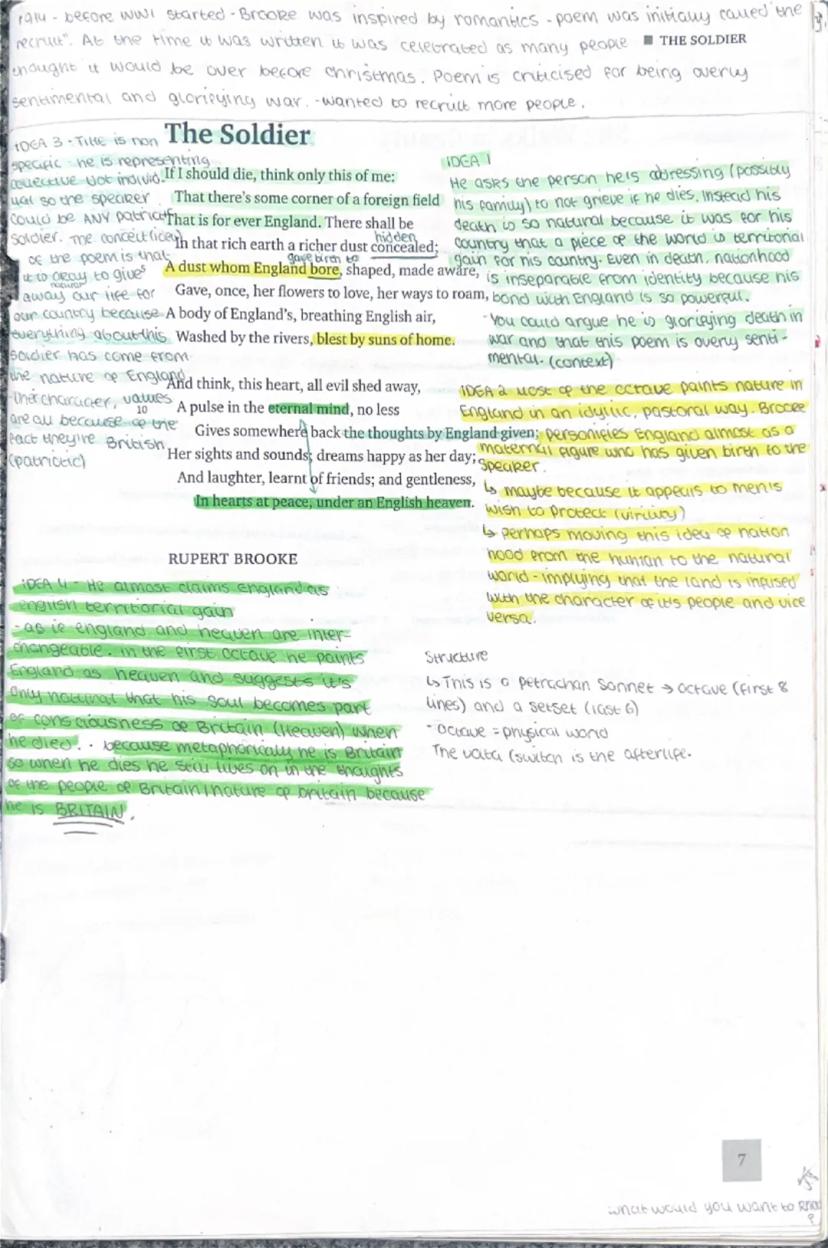 1914 - before WW1 started - Brooke was inspired by romantics - poem was initially called "the
recruit". At the time it was written it was celebrated as many people
■ THE SOLDIER
thought it would be over before christmas. Poem is criticised for being overly
sentimental and glorifying war. - wanted to recruit more people.
The Soldier
If I should die, think only this of me:
That there's some corner of a foreign field
That is for ever England. There shall be
hidden
In that rich earth a richer dust concealed;
gave birth to
A dust whom England bore, shaped, made aware,
Gave, once, her flowers to love, her ways to roam,
A body of England's, breathing English air,
Washed by the rivers, blest by suns of home.
And think, this heart, all evil shed away,
10
A pulse in the eternal mind, no less
Gives somewhere back the thoughts by England given;
Her sights and sounds; dreams happy as her day;
And laughter, learnt of friends; and gentleness,
In hearts at peace, under an English heaven.
RUPERT BROOKE
IDEA 3 - Title is non
specific he is representing
collective not individ-
ual so the speaker
could be ANY patriotic
soldier. The conceit (idea)
of the poem is that
it is okay to give
away our life for
our country because
everything about this
soldier has come from
the nature of England
- their character, values
are all because of the
fact they're British
(patriotic)
IDEA 1
He asks the person he is adressing (possibly
his family) to not grieve if he dies. Instead his
death is so natural because it was for his
country that a piece of the world is territorial
gain for his country. Even in death, nationhood
is inseparable from identity because his
bond with England is so powerful.
- You could argue he is glorifying death in
war and that this poem is overly senti-
mental. (context)
IDEA 2 Most of the octave paints nature in
England in an idyllic, pastoral way. Brooke
personifies England almost as a
maternal figure who has given birth to the
speaker.
↳ maybe because it appears to men's
wish to protect (virility)
↳ perhaps moving this idea of nation
hood from the human to the natural
world - implying that the land is infused
with the character of it's people and vice
versa.
IDEA 4 - He almost claims England as
english territorial gain
- as ie england and heaven are inter-
changeable. in the first octave he paints
England as heaven and suggests it's
only natural that his soul becomes part
of consciousness of Britain (Heaven) when
he died. . because metaphorically he is Britain
so when he dies he still lives on in the thoughts
of the people of Britain/nature of britain because
he is BRITAIN.
Structure
↳ This is a petrachan sonnet → octave (first 8
lines) and a setset (last 6)
- octave = physical world
The volta (switch is the afterlife.
7
what would you want to
?